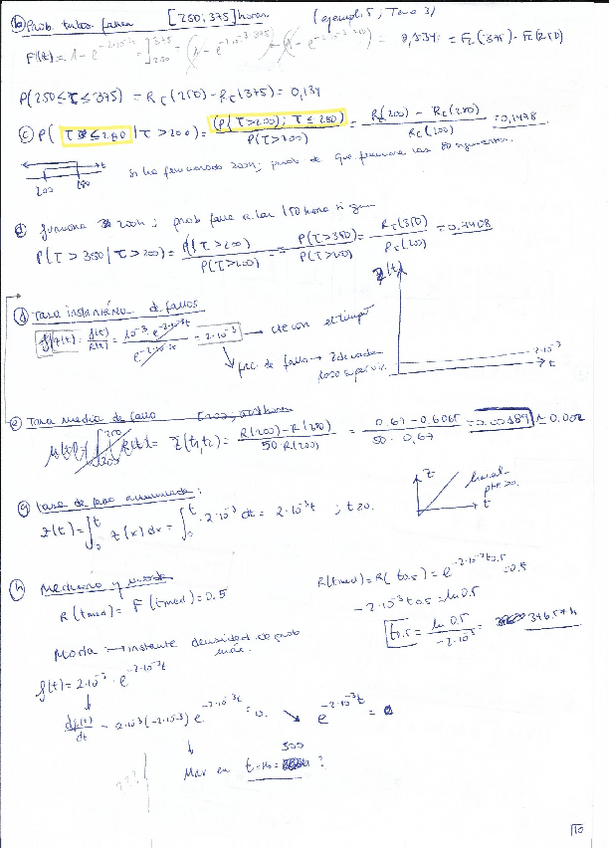 (b) Prob. tubos fallen [250; 375] horas (ejemplo 5, Tema 3)
F(t) = 1 - e^{-2·10^{-3}t} = ]_{250}^{375} = 0,134 = F_C(375) - F_C(250)
P(250 ≤ τ ≤ 375) = R_C(250) - R_C(375) = 0,134
(c) P(τ ≤ 280 | τ > 200) = (P(τ > 200); τ ≤ 280) / P(τ > 200) = R(200) - R_C(280) / R_C(200) = 0,1478
200 280 t
si ha funcionado 200h; prob de que funcione las 80 siguientes.
funciona 200h; prob falle a las 150 horas sig
P(τ > 350 | τ > 200) = P(τ > 200) / P(τ > 200) = P(τ > 350) / P(τ > 200) = R_C(350) / R_C(200) = 0.7408
(d) Tasa instantánea de fallos
z(t) = f(t) / R(t) = 2·10^{-3}·e^{-2·10^{-3}t} / e^{-2·10^{-3}t} = 2·10^{-3} → cte con el tiempo
z(t)
2·10^{-3}
t
(e) Tasa media de fallo
= z(t1,t2) = R(200) - R(250) / 50·R(200) = 0.67 - 0.6065 / 50·0,67 = 0.00189 ≈ 0.002
(g) tasa de fallo acumulada:
Z(t) = ∫_0^t z(x)dx = ∫_0^t 2·10^{-3} dt = 2·10^{-3}t ; t≥0.
z
t
lineal
(h) Mediana y moda
R(tmed) = F(tmed) = 0.5
R(tmed) = R(t0.5) = e^{-2·10^{-3}t0.5} = 0.5
-2·10^{-3}t0.5 = ln 0.5
t0.5 = ln 0.5 / -2·10^{-3} = 346.57 h
Moda → instante densidad de prob
máx.
f(t) = 2·10^{-3}·e^{-2·10^{-3}t}
df(t)/dt = 2·10^{-3}(-2·10^{-3}) e^{-2·10^{-3}t} = 0. ↘ e^{-2·10^{-3}t} = 0
??
Max en t = 500 ?
10